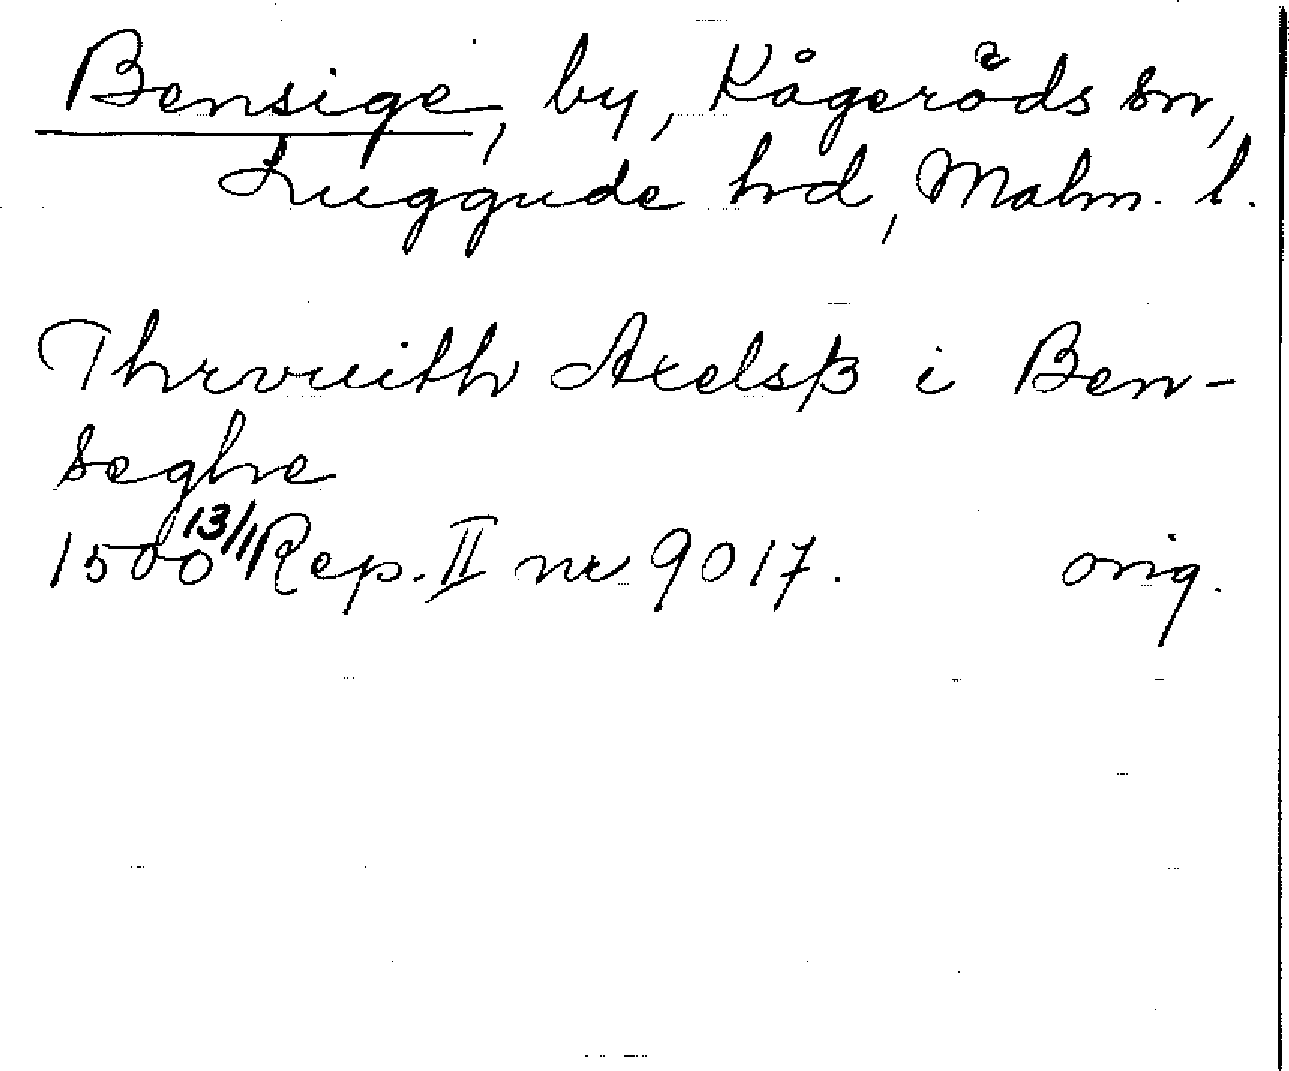 Bensige, by, Kågeröds sn,
Luggude hd, Malm. l.
Thrvuith Axelsß i Ben-
seghe
1500 13/1 Rep. II nr 9017. orig.